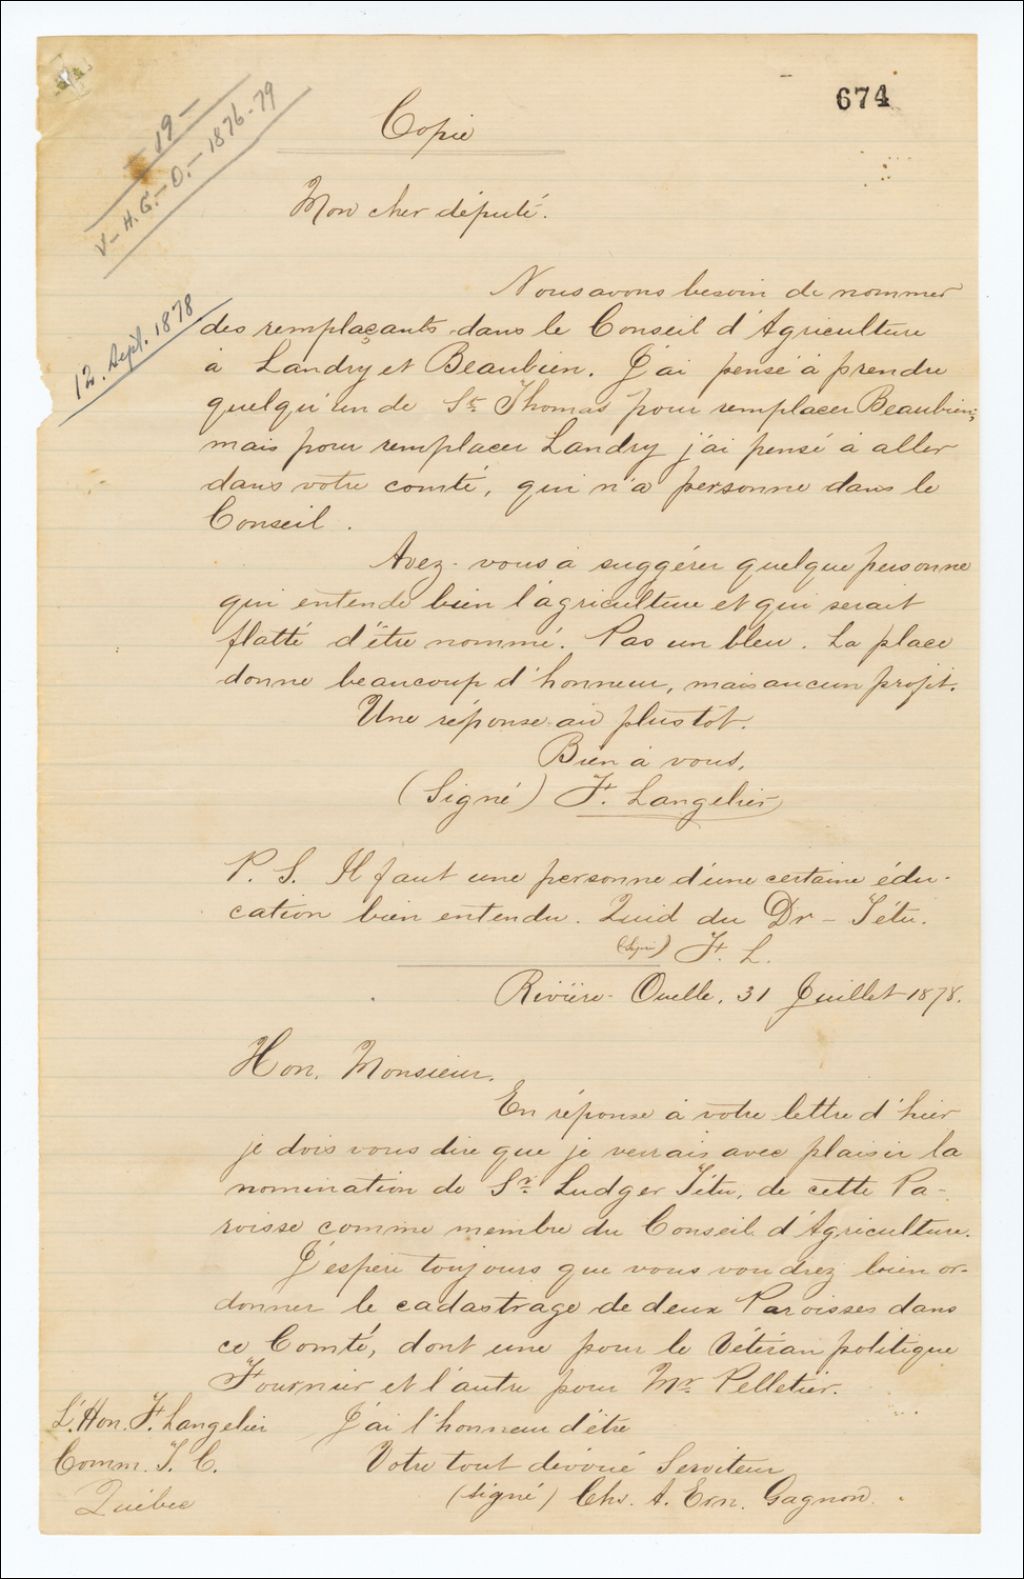 674
— 19 —
V — H. G. — O. — 1876-79
Copie
Mon cher député.
12. Sept. 1878
Nous avons besoin de nommer
des remplaçants dans le Conseil d'Agriculture
à Landry et Beaubien. J'ai pensé à prendre
quelqu'un de St Thomas pour remplacer Beaubien;
mais pour remplacer Landry j'ai pensé à aller
dans votre comté, qui n'a personne dans le
Conseil.
Avez-vous à suggérer quelque personne
qui entende bien l'agriculture et qui serait
flatté d'être nommé. Pas un bleu. La place
donne beaucoup d'honneur, mais aucun profit.
Une réponse au plustôt.
Bien à vous,
(Signé) F. Langelier
P. S. Il faut une personne d'une certaine édu-
cation bien entendu. Quid du Dr - Tétu.
(Signé) F. L.
Rivière-Ouelle, 31 Juillet 1878.
Hon. Monsieur.
En réponse à votre lettre d'hier
je dois vous dire que je verrais avec plaisir la
nomination de Sr. Ludger Tétu, de cette Pa-
roisse comme membre du Conseil d'Agriculture.
J'espère toujours que vous voudrez bien or-
donner le cadastrage de deux Paroisses dans
ce Comté, dont une pour le Vétéran politique
Fournier et l'autre pour Mr Pelletier.
J'ai l'honneur d'être
Votre tout dévoué Serviteur
(signé) Chs. A. Ern. Gagnon.
L'Hon. F. Langelier
Comm. T. C.
Québec